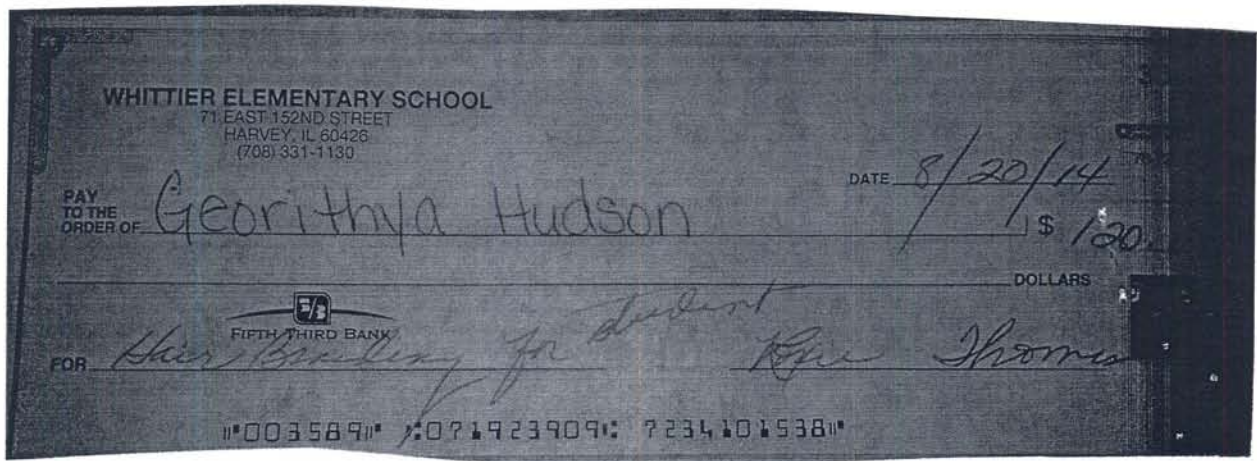 WHITTIER ELEMENTARY SCHOOL
71 EAST 152ND STREET
HARVEY, IL 60426
(708) 331-1130
DATE 8/20/14
PAY TO THE ORDER OF Georithya Hudson $ 120
DOLLARS
FIFTH THIRD BANK
FOR Hair Braiding for student Thomas
⑈003589⑈ ⑆071923909⑆ 7234101538⑈